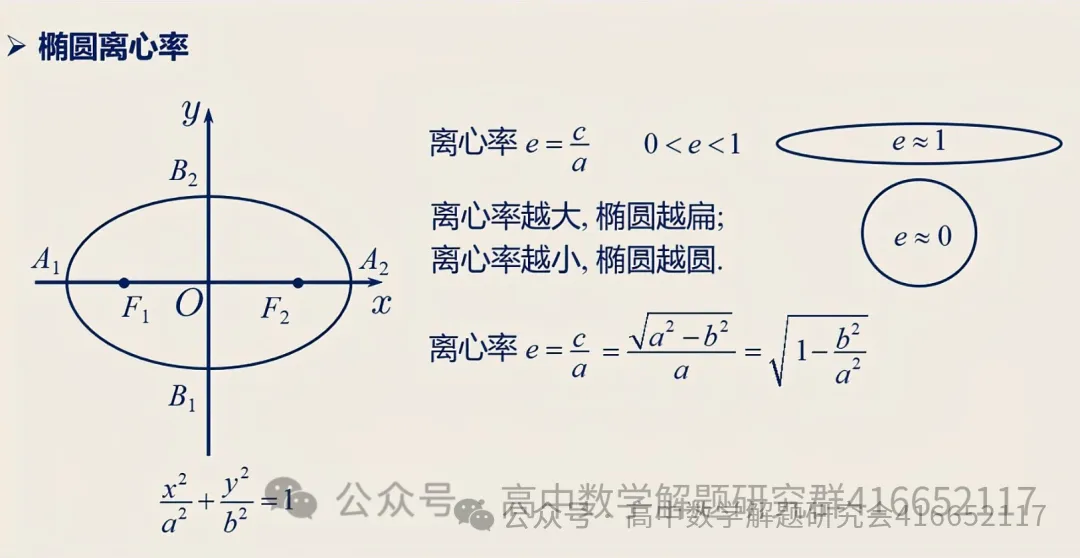 ➤ 椭圆离心率
y
B₂
A₁
A₂
F₁
O
F₂
x
B₁
x²/a² + y²/b² = 1
离心率 e = c/a 0 < e < 1
e ≈ 1
离心率越大, 椭圆越扁;
离心率越小, 椭圆越圆.
e ≈ 0
离心率 e = c/a = √(a² − b²)/a = √(1 − b²/a²)
公众号 · 高中数学解题研究群416652117
公众号 · 高中数学解题研究会416652117